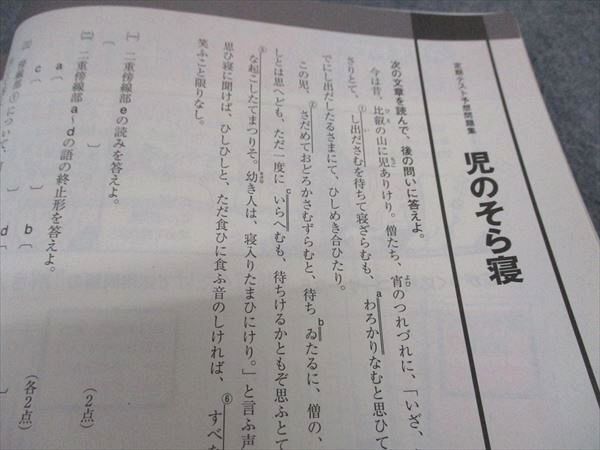 定期テスト予想問題集
児のそら寝
次の文章を読んで、後の問いに答えよ。
今は昔、比叡の山に児ありけり。僧たち、宵のつれづれに、「いざ、
さりとて、①し出ださむを待ちて寝ざらむも、aわろかりなむと思ひて
でにし出だしたるさまにて、ひしめき合ひたり。
この児、②さだめておどろかさむずらむと、待ちbゐたるに、僧の、
しとは思へども、ただ一度にcいらへむも、待ちけるかともぞ思ふとて
⑤な起こしたてまつりそ。幼き人は、寝入りたまひにけり。」と言ふ声
思ひ寝に聞けば、ひしひしと、ただ食ひに食ふ音のしければ、⑥すべな
笑ふこと限りなし。
㈠ 二重傍線部eの読みを答えよ。
〔
(2点)
㈡ 二重傍線部a〜dの語の終止形を答えよ。
a〔 〕 b〔
c〔 〕 d〔
(各2点)